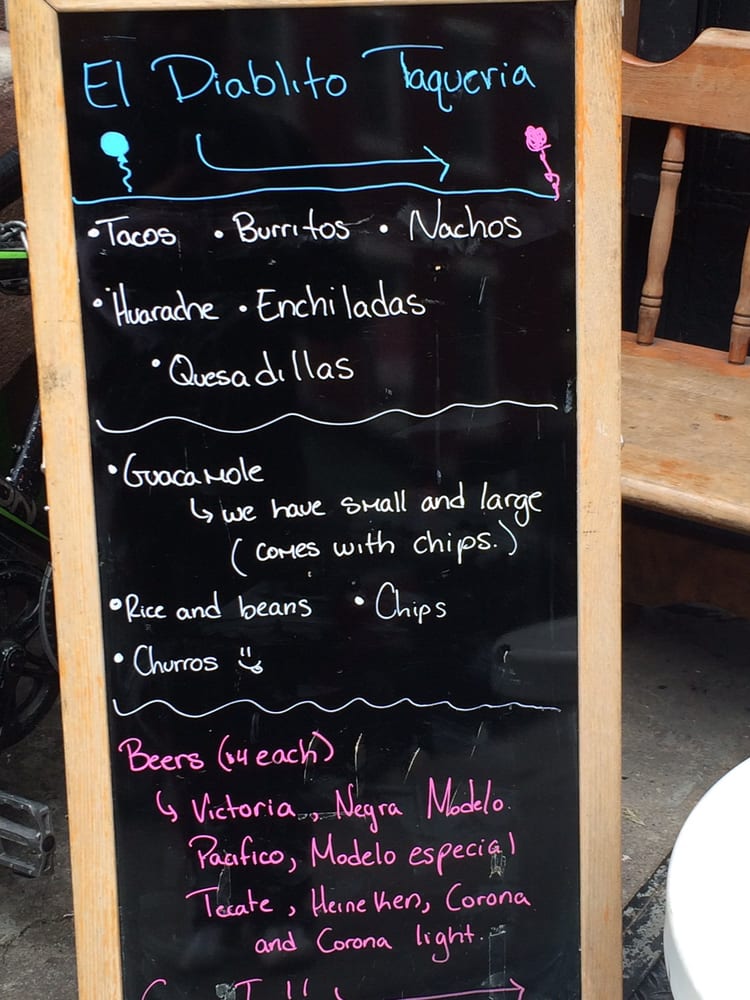 El Diablito Taqueria
•Tacos • Burritos • Nachos
•Huarache •Enchiladas
•Quesadillas
•Guacamole
↳ we have small and large
(comes with chips.)
•Rice and beans • Chips
• Churros
Beers ($4 each)
↳ Victoria, Negra Modelo.
Pacifico, Modelo especial
Tecate, Heineken, Corona
and Corona light.